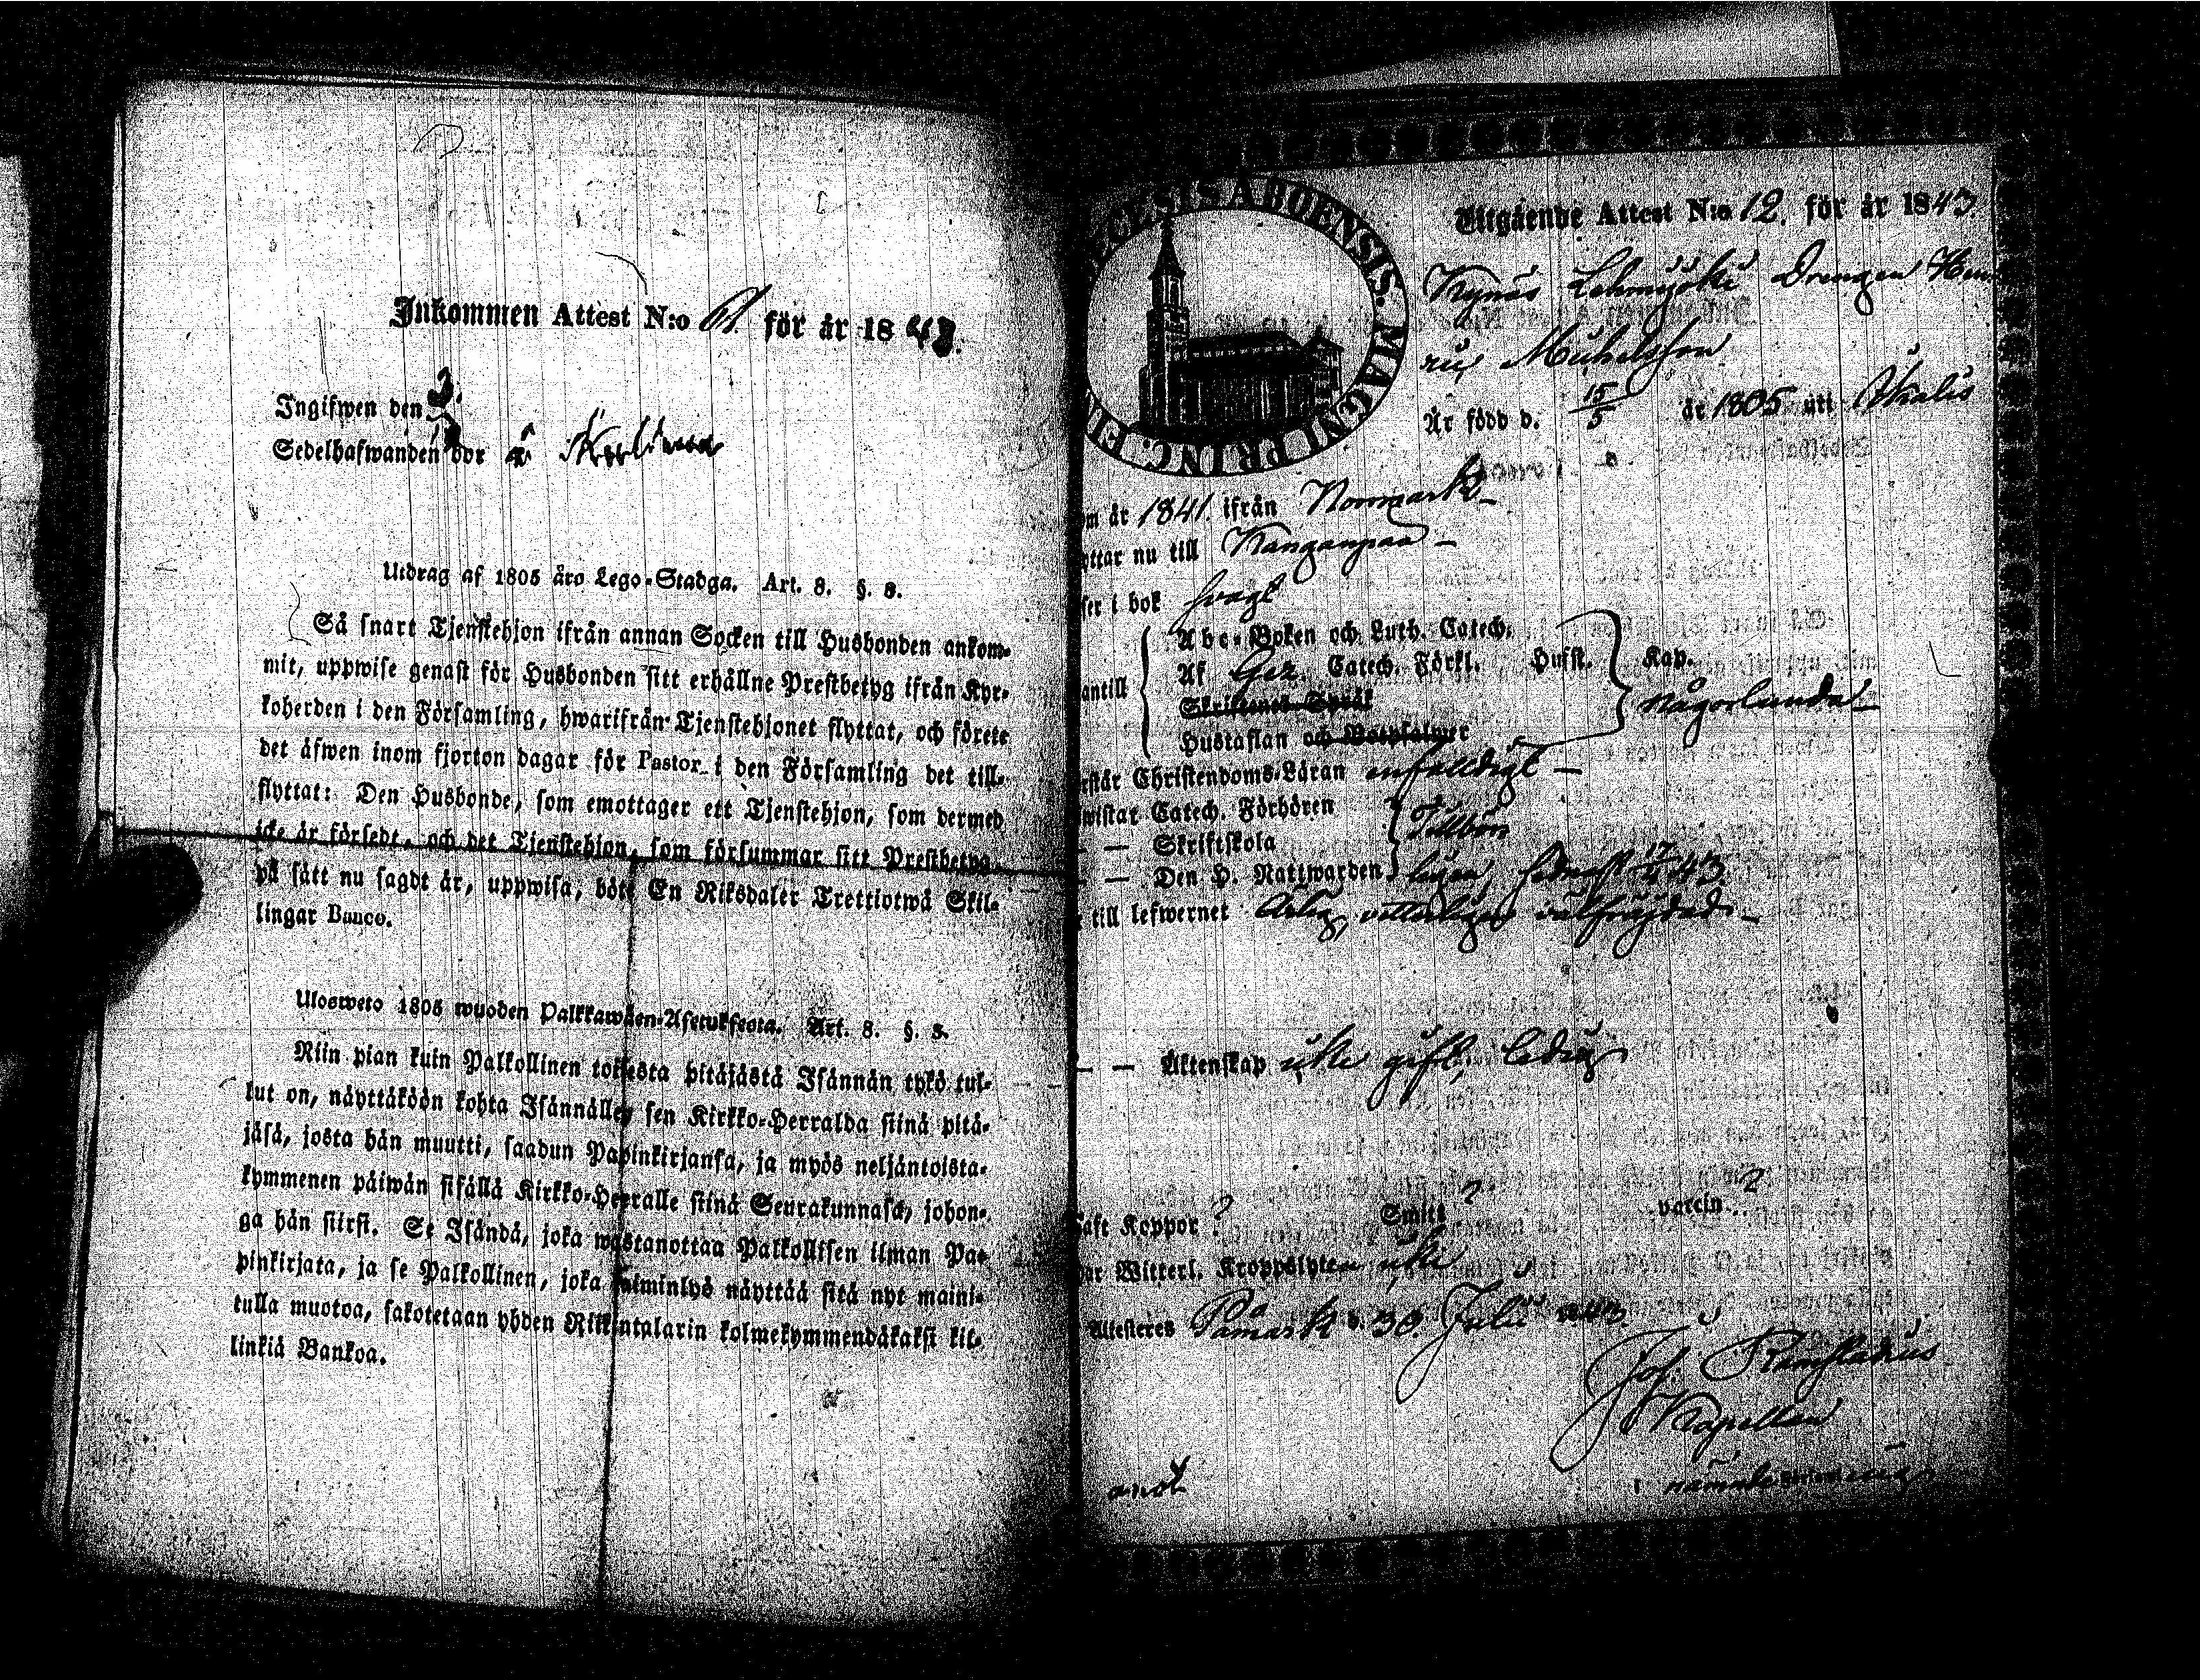 Inkommen Attest N:o 61 för år 1843.
Ingifwen den 3/
Sedelhafwanden bor å
Utdrag af 1805 års Lego-Stadga. Art. 8. §. 8.
Så snart Tjenstehjon ifrån annan Socken till Husbonden ankom-
mit, uppwise genast för Husbonden sitt erhållne Prestbetyg ifrån Kyr-
koherden i den Församling, hwarifrån Tjenstehjonet flyttat, och förete
det äfwen inom fjorton dagar för Pastor i den Församling det till-
flyttat: Den Husbonde, som emottager ett Tjenstehjon, som dermed
icke är försedt, och det Tjenstehjon, som försummar sitt Prestbetyg,
på sätt nu sagdt är, uppwisa, böte En Riksdaler Trettiotwå Skil-
lingar Banco.
Ulosweto 1805 wuoden Palkkawäen-Asetuksesta. Art. 8. §. 8.
Niin pian kuin Palkollinen toisesta pitäjästä Isännän tykö tul-
lut on, näyttäköön kohta Isännälley sen Kirkko-Herralda siinä pitä-
jäsä, josta hän muutti, saadun Papinkirjansa, ja myös neljäntoista-
kymmenen päiwän sisällä Kirkko-Herralle siinä Seurakunnasa, johon-
ga hän siirsi. Se Isändä, joka wastanottaa Palkollisen ilman Pa-
pinkirjata, ja se Palkollinen, joka laiminlyö näyttää sitä nyt maini-
tulla muotoa, sakotetaan yhden Riikintalarin kolmekymmendäkaksi kil-
linkiä Bankoa.
ECCLESIS ABOENSIS. MAGNI PRINC. FIN
Utgående Attest N:o 12. för år 1843.
Kynäs Lehmijoki Drengen Hen-
rik Michelsson
Är född d. 15/5 år 1805 uti Ikalis
om år 1841. ifrån Norrmark
yttar nu till Kanganpaa
ser i bok svagt
Abc-Boken och Luth. Catech.
antill Af Gez. Catech. Förkl. Husst. Kap.
Skriftenes Språk någorlunda
Hustaflan och Botpsalmer
rstår Christendoms-Läran enfalldigt
wistat Catech. Förhören
— — Skriftskola Tillbör-
— — Den H. Nattwarden ligen, sednast 17/4 43
till lefwernet Ärlig, vitterligen välfrejdad
— — Äktenskap icke gift, ledig
aft Koppor ? Smitt ? vaccin ?
ar Witterl. Kroppslyten icke
Attesteres Påmark d. 30. Julii 1843.
Joh.
Kapellan